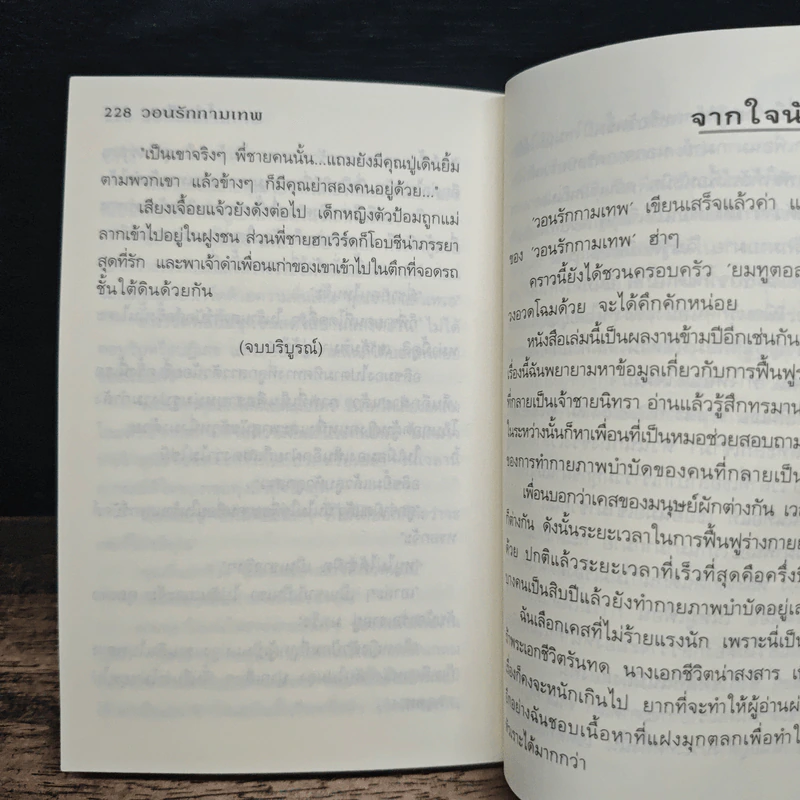 228 วอนรักกามเทพ
'เป็นเขาจริงๆ พี่ชายคนนั้น...แถมยังมีคุณปู่เดินยิ้ม
ตามพวกเขา แล้วข้างๆ ก็มีคุณย่าสองคนอยู่ด้วย...'
เสียงเจื้อยแจ้วยังดังต่อไป เด็กหญิงตัวป้อมถูกแม่
ลากเข้าไปอยู่ในฝูงชน ส่วนพี่ชายฮาเวิร์ดก็โอบซีน่าภรรยา
สุดที่รัก และพาเจ้าดำเพื่อนเก่าของเขาเข้าไปในตึกที่จอดรถ
ชั้นใต้ดินด้วยกัน
(จบบริบูรณ์)
จากใจ
'วอนรักกามเทพ' เขียนเสร็จแล้วค่า
ของ 'วอนรักกามเทพ' ฮ่าๆ
คราวนี้ยังได้ชวนครอบครัว 'ยมทูต
วงอวดโฉมด้วย จะได้คึกคักหน่อย
หนังสือเล่มนี้เป็นผลงานข้ามปีอีกเช่นกัน
เรื่องนี้ฉันพยายามหาข้อมูลเกี่ยวกับการฟื้นฟู
ที่กลายเป็นเจ้าชายนิทรา อ่านแล้วรู้สึกทรมาน
ในระหว่างนั้นก็หาเพื่อนที่เป็นหมอช่วยสอบถาม
ของการทำกายภาพบำบัดของคนที่กลายเป็น
เพื่อนบอกว่าเคสของมนุษย์ผักต่างกัน
ก็ต่างกัน ดังนั้นระยะเวลาในการฟื้นฟูร่างกาย
ด้วย ปกติแล้วระยะเวลาที่เร็วที่สุดคือครึ่ง
บางคนเป็นสิบปีแล้วยังทำกายภาพบำบัดอยู่
ฉันเลือกเคสที่ไม่ร้ายแรงนัก เพราะนี่เป็น
ถ้าพระเอกชีวิตรันทด นางเอกชีวิตน่าสงสาร
เรื่องก็คงจะหนักเกินไป ยากที่จะทำให้ผู้อ่าน
อีกอย่างฉันชอบเนื้อหาที่แฝงมุกตลกเพื่อทำให้
หัวเราะได้มากกว่า